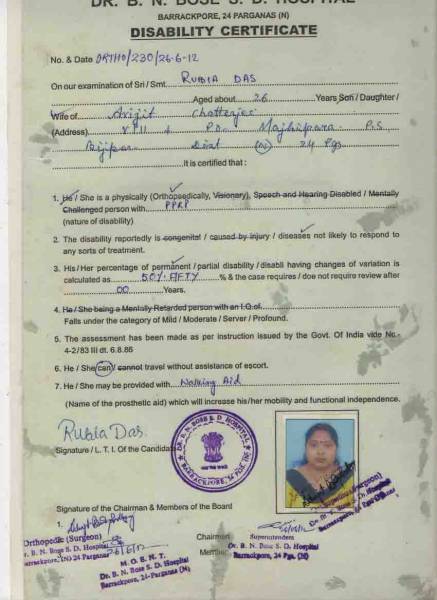 DR. B. N. BOSE S. D. HOSPITAL
BARRACKPORE, 24 PARGANAS (N)
DISABILITY CERTIFICATE
No. & Date ORTHO/230/26-6-12
On our examination of Sri / Smt. RUBIA DAS
Aged about 26 Years Son / Daughter /
Wife of Avijit Chatterjee
(Address) P.O. Majhipara P.S.
Bijpur Dist (N) 24 Pgs
It is certified that :
1. He / She is a physically (Orthopsedically, Visionery), Speech and Hearing Disabled / Mentally
Challenged person with PPRP
(nature of disability)
2. The disability reportedly is congenital / caused by injury / diseases not likely to respond to
any sorts of treatment.
3. His / Her percentage of permanent / partial disability / disabli having changes of variation is
calculated as 50% FIFTY % & the case requires / doe not require review after
00 Years.
4. He / She being a Mentally Retarded person with an I.Q. of
Falls under the category of Mild / Moderate / Server / Profound.
5. The assessment has been made as per instruction issued by the Govt. Of India vide No.-
4-2/83 III dt. 6.8.86
6. He / She can / cannot travel without assistance of escort.
7. He / She may be provided with Walking Aid
(Name of the prosthetic aid) which will increase his/her mobility and functional independence.
Rubia Das.
Signature / L. T. I. Of the Candidate
DR. B. N. BOSE S. D. HOSPITAL
BARRACKPORE, 24 PGS. (N)
Signature of the Chairman & Members of the Board
1.
Orthopedic (Surgeon)
Dr. B. N. Bose S. D. Hospital
Barrackpore, (N) 24 Parganas
26/6/12
M. O. B. N. T.
Dr. B. N. Bose S. D. Hospital
Barrackpore, 24-Parganas (N)
Chairman
Superintendent
Dr. B. N. Bose S. D. Hospital
Member
Barrackpore, 24 Pgs. (N)
(Surgeon)
Dr. B. N. Bose S. D. Hospital
Barrackpore, 24 Pgs